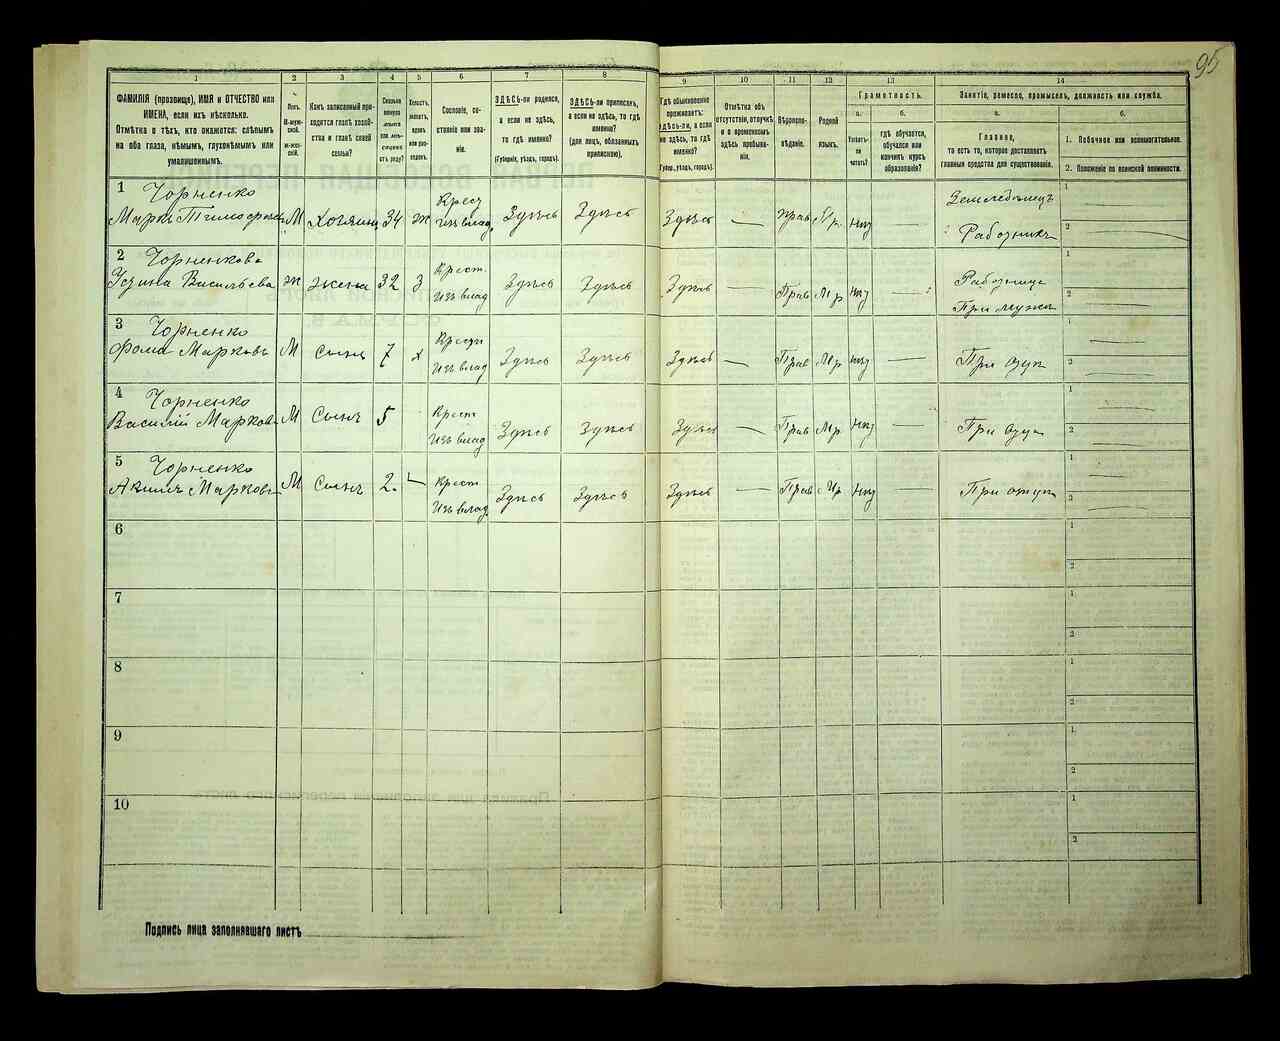 95
1
2
3
4
5
6
7
8
9
10
11
12
13
14
ФАМИЛІЯ (прозвище), ИМЯ и ОТЧЕСТВО или
ИМЕНА, если ихъ нѣсколько.
Отмѣтка о тѣхъ, кто окажется: слѣпымъ
на оба глаза, нѣмымъ, глухонѣмымъ или
умалишеннымъ.
Полъ.
М-муж-
ской.
Ж-жен-
скій.
Какъ записанный при-
ходится главѣ хозяй-
ства и главѣ своей
семьи?
Сколько
минуло
лѣтъ
или мѣ-
сяцевъ
отъ роду?
Холостъ,
женатъ,
вдовъ
или раз-
веденъ.
Сословіе, со-
стояніе или зва-
ніе.
ЗДѢСЬ-ли родился,
а если не здѣсь,
то гдѣ именно?
(Губернія, уѣздъ, городъ).
ЗДѢСЬ-ли приписанъ,
а если не здѣсь, то гдѣ
именно?
(для лицъ, обязанныхъ
припискою).
Гдѣ обыкновенно
проживаетъ:
здѣсь-ли, а если
не здѣсь, то гдѣ
именно?
(Губер., уѣздъ, городъ).
Отмѣтка объ
отсутствіи, отлучкѣ
и о временномъ
здѣсь пребыва-
ніи.
Вѣроиспо-
вѣданіе.
Родной
языкъ.
Грамотность.
а.
б.
Умѣетъ-
ли
читать?
гдѣ обучается,
обучался или
кончилъ курсъ
образованія?
Занятіе, ремесло, промыселъ, должность или служба.
а.
б.
Главное,
то есть то, которое доставляетъ
главныя средства для существованія.
1. Побочное или вспомогательное.
2. Положеніе по воинской повинности.
1 Чорненко
Марко Тимофѣев М Хозяинъ 34 ж Крест Изъ влад. Здѣсь Здѣсь Здѣсь — Прав М.р. нѣт — Земледѣлецъ Работникъ 1 2
2 Чорненкова
Устина Васильева ж жена 32 з Крест. Изъ влад Здѣсь Здѣсь Здѣсь — Прав М.р нѣт — Работница При мужѣ 1 2
3 Чорненко
Фома Марковъ М Сынъ 7 х Крест Изъ влад Здѣсь Здѣсь Здѣсь — Прав М.р нѣт — При отцѣ 1 2
4 Чорненко
Василій Марков М Сынъ 5 Крест Изъ влад Здѣсь Здѣсь Здѣсь — Прав М.р нѣт — При отцѣ 1 2
5 Чорненко
Акимъ Марковъ М Сынъ 2. — Крест Изъ влад Здѣсь Здѣсь Здѣсь — Прав М.р нѣт — При отцѣ 1 2
6 1
2
7 1
2
8 1
2
9 1
2
10 1
2
Подпись лица заполнявшаго листъ